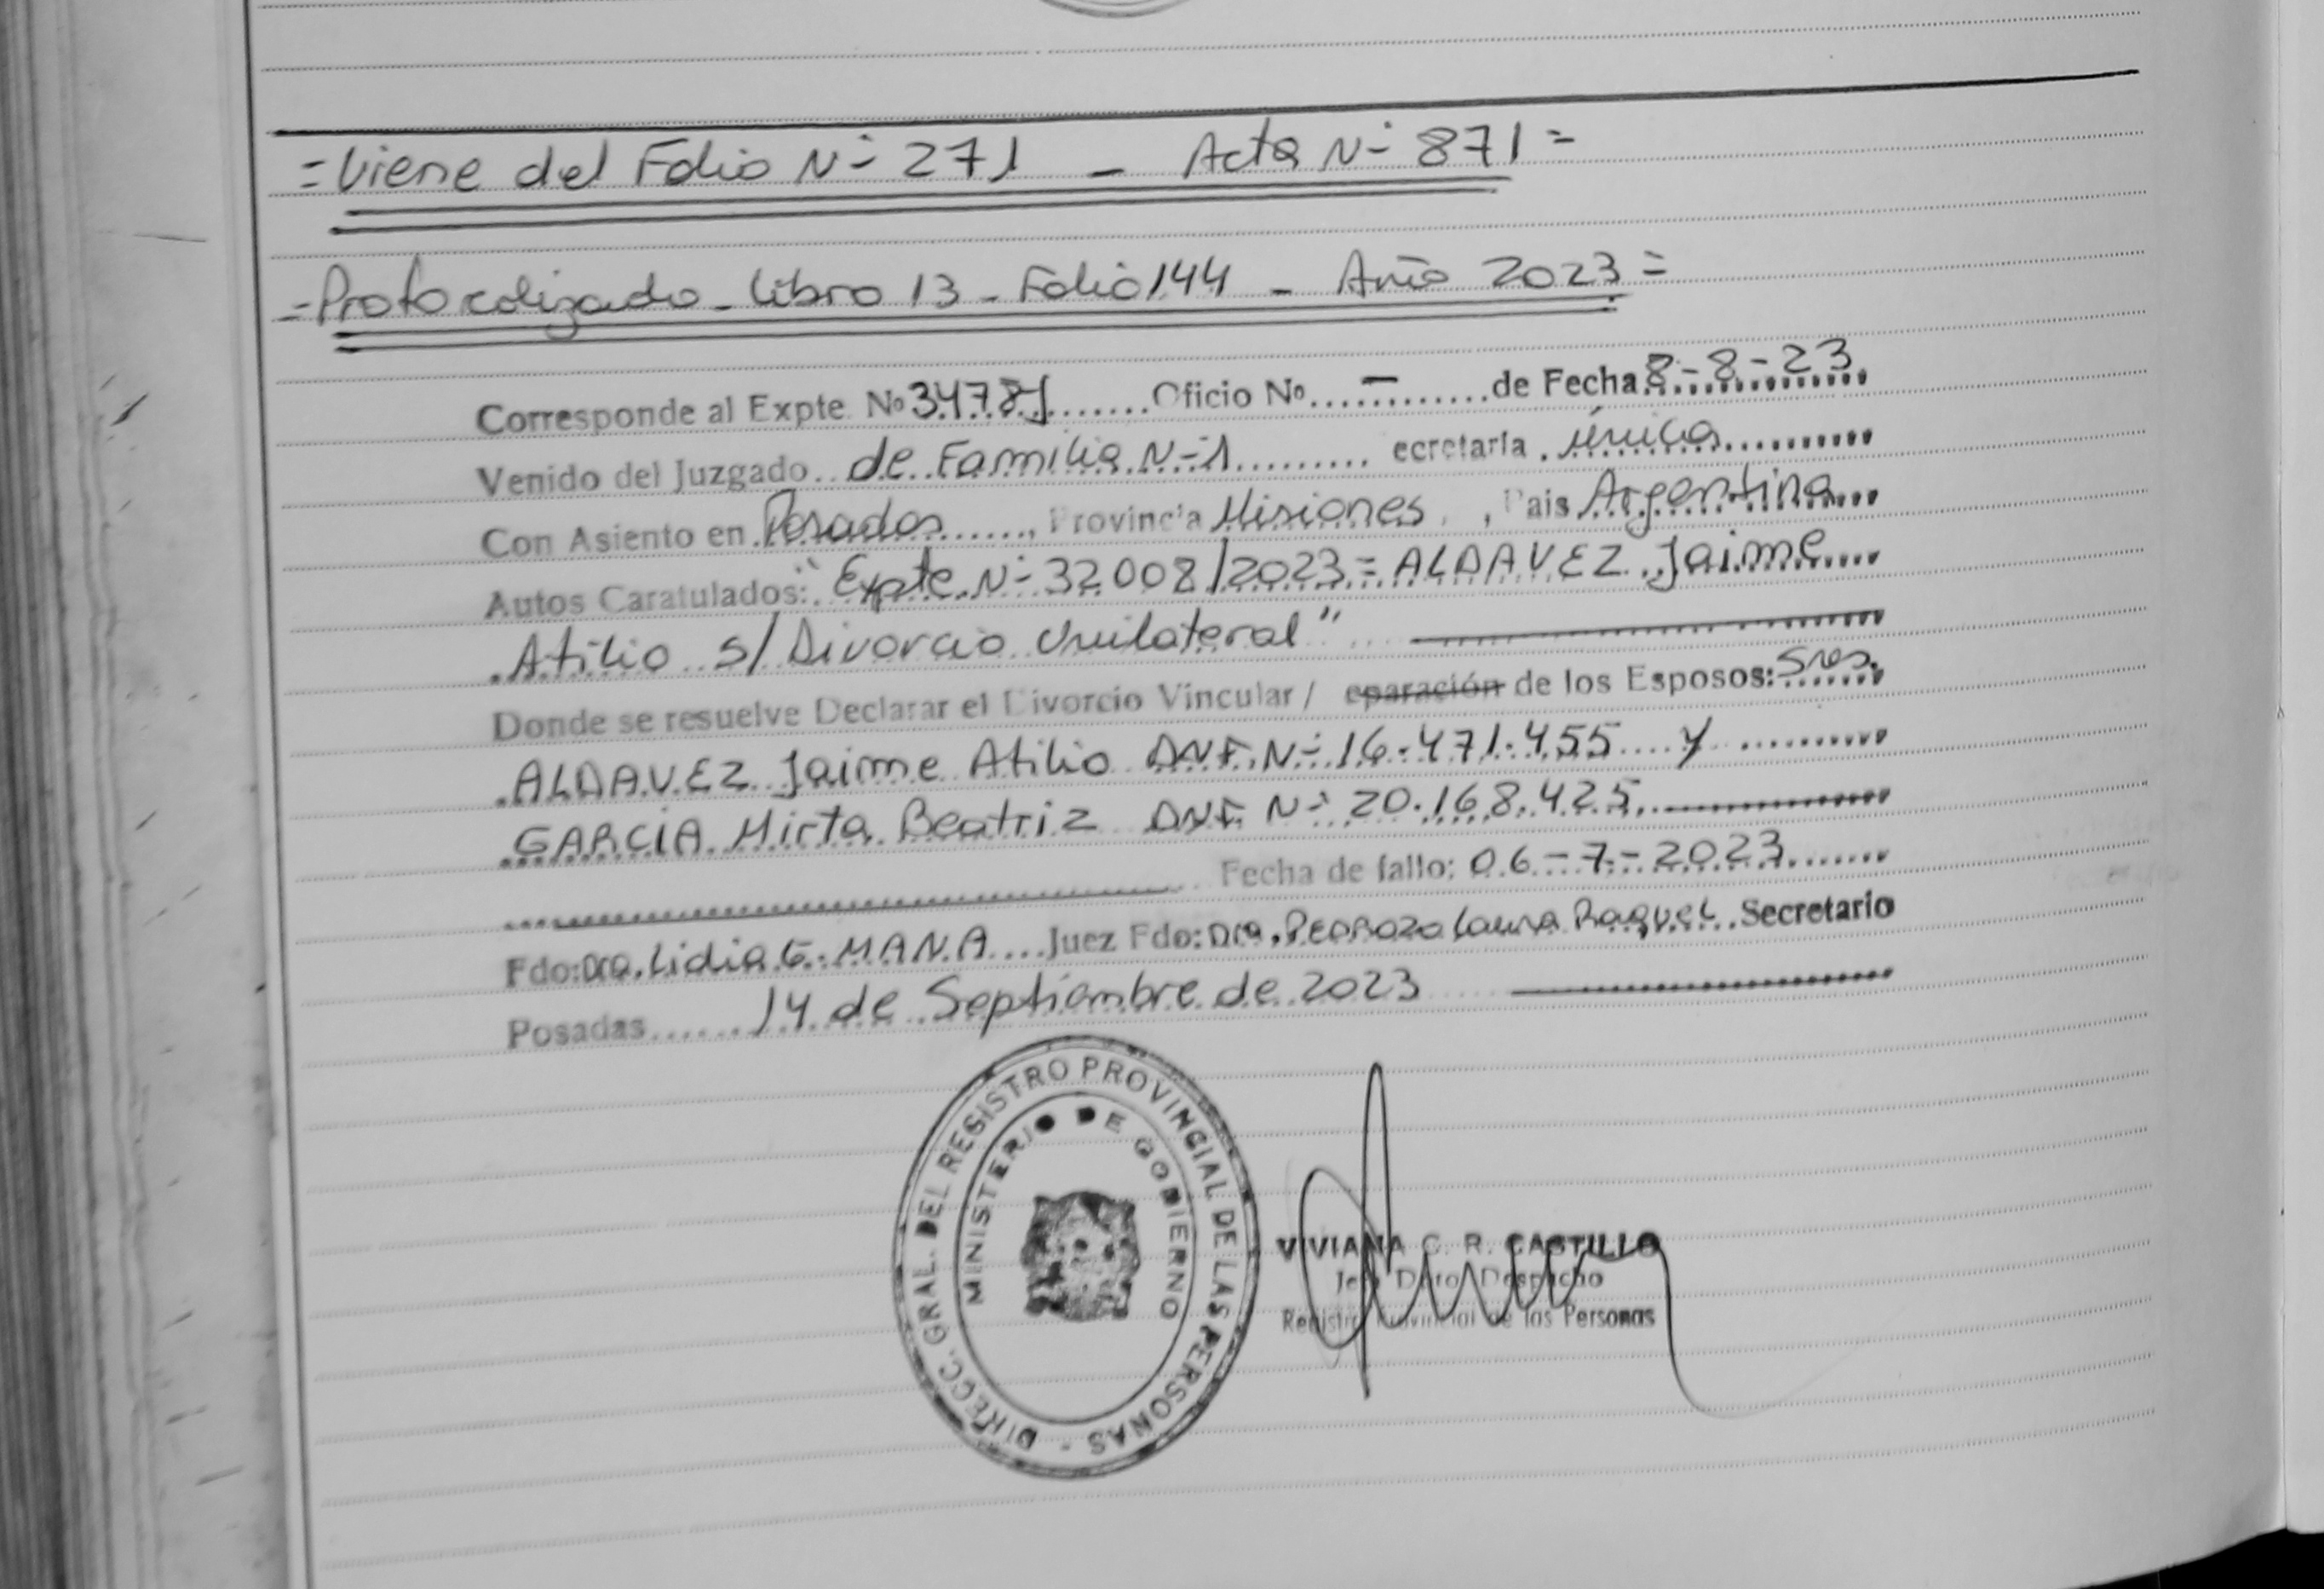 =Viene del Folio N- 271 - Acta N- 871=
=Protocolizado - libro 13 - Folio 144 - Año 2023=
Corresponde al Expte Nº 3478J Oficio Nº - de Fecha 8-8-23
Venido del Juzgado de Familia N-1 ecretaría única
Con Asiento en Posadas, Provincia Misiones, Pais Argentina
Autos Caratulados: "Expte. N- 32008/2023= ALDAVEZ Jaime
Atilio s/ Divorcio Unilateral"
Donde se resuelve Declarar el Divorcio Vincular / eparación de los Esposos: Sres.
ALDAVEZ Jaime Atilio DNI. N- 16.471.455 y
GARCIA Mirta Beatriz DNI. N- 20.168.425.
Fecha de fallo: 06-7-2023
Fdo: Dra. Lidia G. MANA Juez Fdo: Dra. PEDROZO Laura Raquel. Secretario
Posadas 14 de Septiembre de 2023
DIRECC. GRAL. DEL REGISTRO PROVINCIAL DE LAS PERSONAS -
MINISTERIO DE GOBIERNO
VIVIANA C. R. CASTILLO
Jefa Dpto. Despacho
Registro Provincial de las Personas